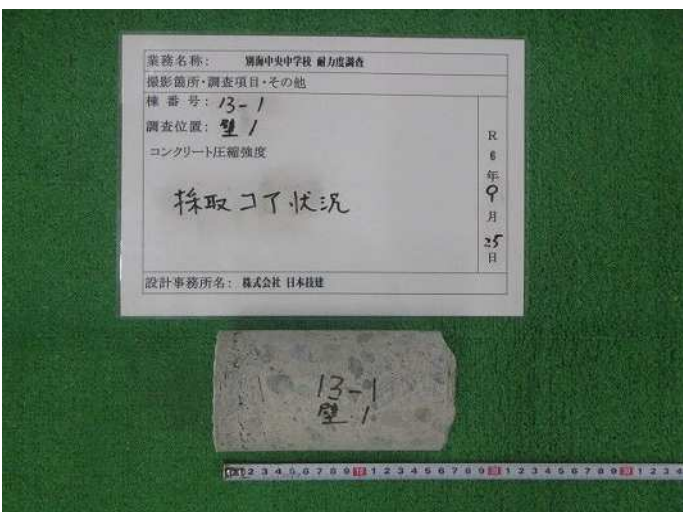 業務名称: 別海中央中学校 耐力度調査
撮影箇所・調査項目・その他
棟番号: 13-1
調査位置: 壁1
コンクリート圧縮強度
採取コア状況
R
6
年
9
月
25
日
設計事務所名: 株式会社 日本技建
13-1
壁1
2 3 4 5 6 7 8 9 10 1 2 3 4 5 6 7 8 9 20 1 2 3 4 5 6 7 8 9 30 1 2 3 4